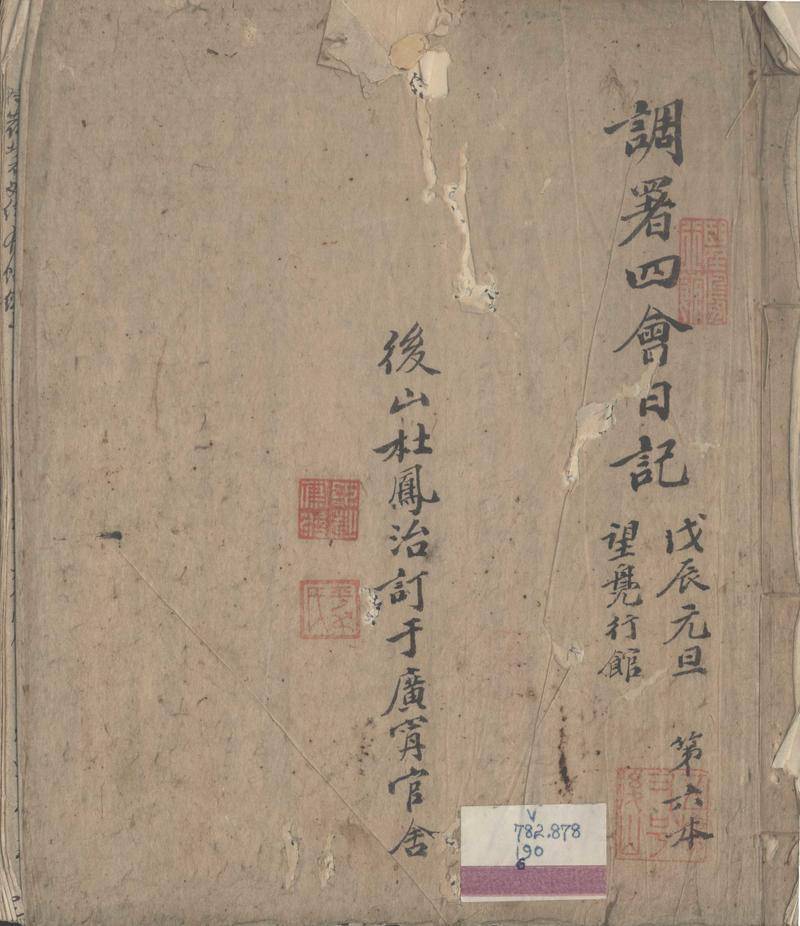 調署四會日記
戊辰元旦
望鳧行館
第六本
後山杜鳳治訂于廣甯官舍
V
782.878
190
6